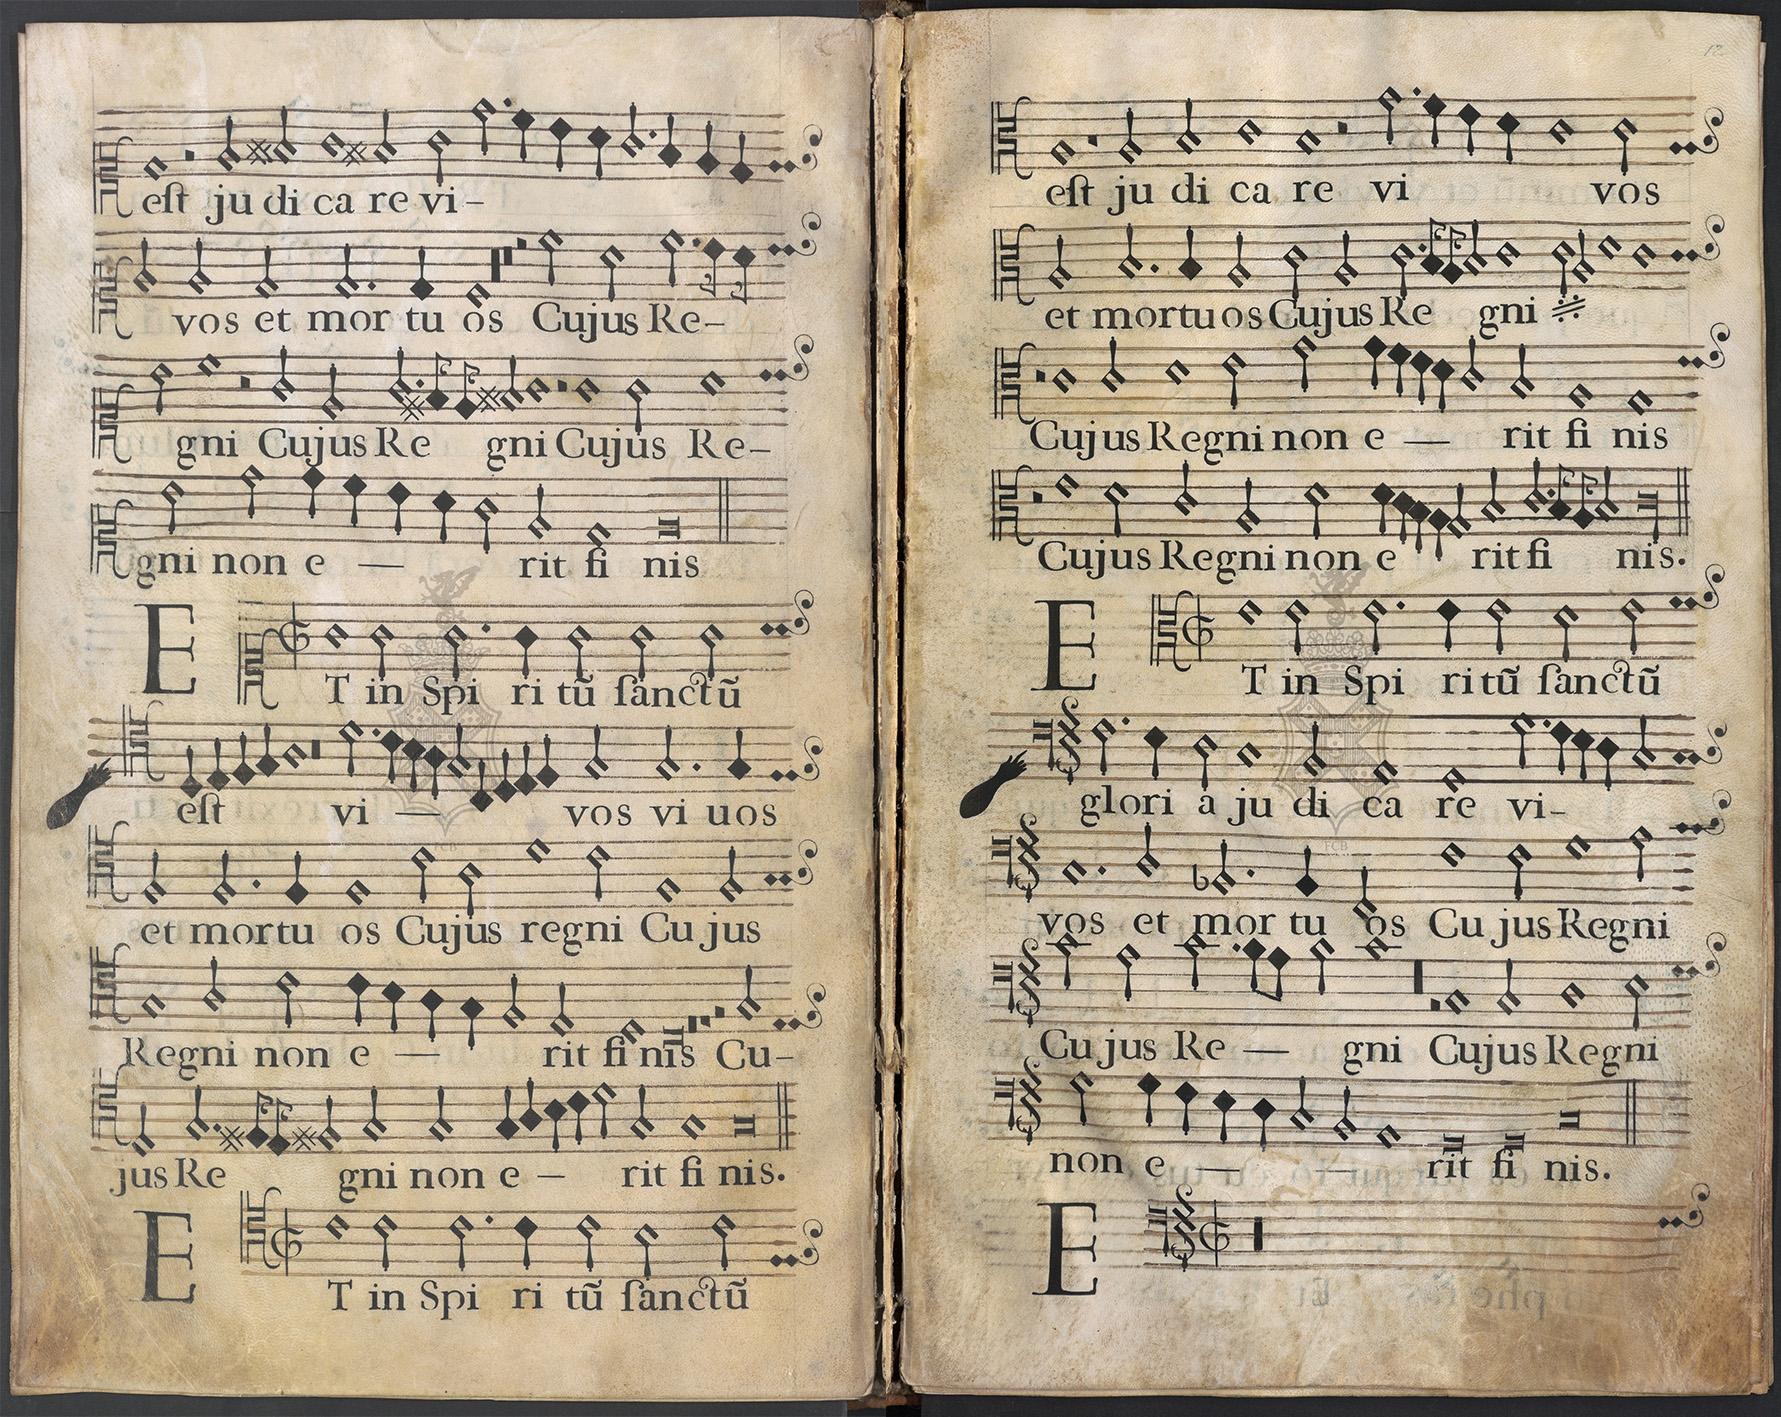 eſt ju di ca re vi –
vos et mor tu os Cujus Re –
gni Cujus Re gni Cujus Re –
gni non e — rit fi nis
E T in Spi ri tũ ſanctũ
eſt vi — vos vi uos
et mortu os Cujus regni Cu jus
Regni non e — rit fi nis Cu –
jus Re gni non e – rit fi nis.
E T in Spi ri tũ ſanctũ
12
eſt ju di ca re vi vos
et mortuos Cujus Re gni
Cujus Regni non e — rit fi nis
Cujus Regni non e rit fi nis.
E T in Spi ri tũ ſanctũ
glori a ju di ca re vi –
vos et mor tu os Cu jus Regni
Cu jus Re — gni Cujus Regni
non e — – rit fi nis.
E